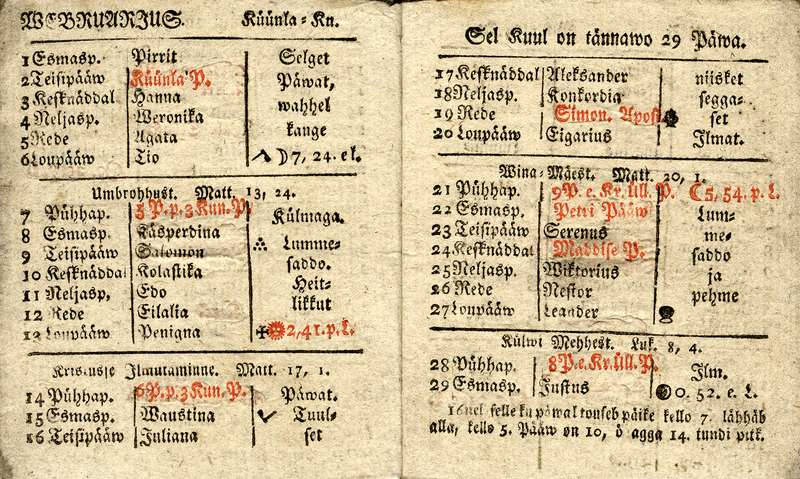 WEBRUARIUS. Küünla-Kn.
1 Esmasp. Pirrit Selget
2 Teisipääw Küünla P. Päwat,
3 Kesknäddal Hanna wahhel
4 Neljasp. Weronika kange
5 Rede Agata
6 Loupääw Tio 7, 24. el.
Umbrohhust. Matt. 13, 24.
7 Pühhap. 5 P. p. 3 Kun. P. Külmaga.
8 Esmasp. Käsperdina
9 Teisipääw Salomon Lumme-
10 Kesknäddal Kolastika saddo.
11 Neljasp. Edo Heit-
12 Rede Eilalia likkut
13 Loupääw Penigna 2, 41. p. L.
Kristusse Ilmutaminne. Matt. 17, 1.
14 Pühhap. 6 P. p. 3 Kun. P. Päwat.
15 Esmasp. Waustina Tuul-
16 Teisipääw Juliana set
Sel Kuul on tännawo 29 Päwa.
17 Kesknäddal Aleksander niisket
18 Neljasp. Konkordia segga-
19 Rede Simon. Apost set
20 Loupääw Eigarius Ilmat.
Wina-Mäest. Matt. 20, 1.
21 Pühhap. 9 P. e. Kr. üll. P. 5, 54. p. L.
22 Esmasp. Petri Pääw Lum-
23 Teisipääw Serenus me-
24 Kesknäddal Maddise P. saddo
25 Neljasp. Wiktorius ja
26 Rede Nestor pehme
27 Loupääw Leander
Külwi Mehhest. Luk. 8, 4.
28 Pühhap. 8 P. e. Kr. üll. P. Ilm.
29 Esmasp. Justus 0. 52. e. L.
16nel selle ku päwal touseb päike kello 7. lähhäb
alla, kello 5. Pääw on 10, ö agga 14. tundi pitk.